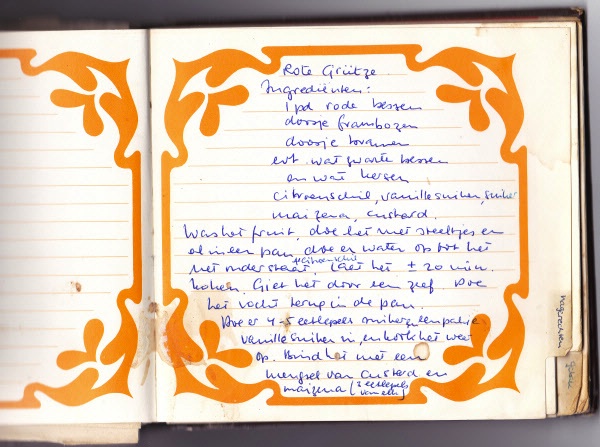 Rote Grütze
Ingrediënten:
1 pd rode bessen
doosje frambozen
doosje bramen
evt wat zwarte bessen
en wat kersen
citroenschil, vanillesuiker, suiker
maizena, custard.
Was het fruit, doe het met steeltjes en
al in een pan, doe er water op tot het
net onder staat, Laat het ± 20 min.
+citroenschil
koken. Giet het door een zeef. Doe
het vocht terug in de pan.
Doe er 4-5 eetlepels suiker, een pakje
vanillesuiker in, en kook het weer
op. Bind het met een
mengsel van custard en
maizena (2 eetlepels
van elk)
nagerechten